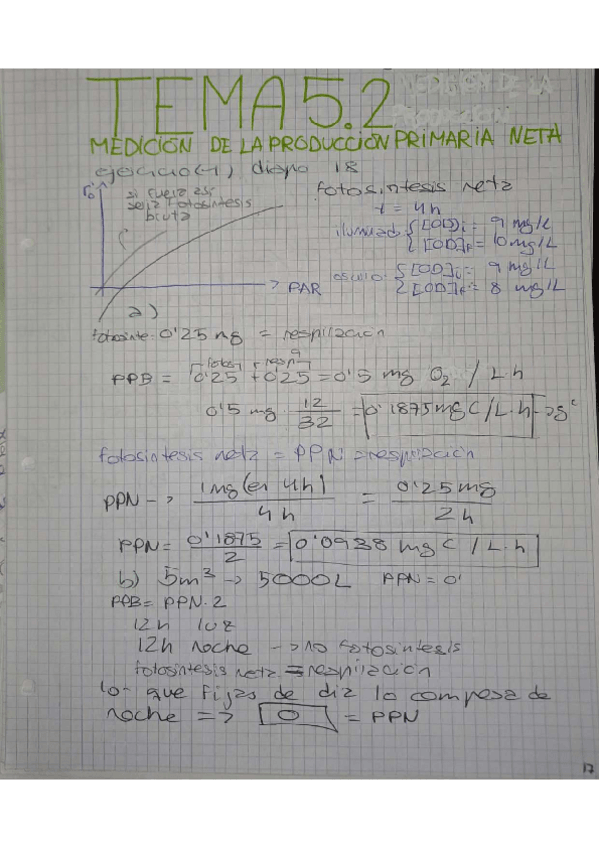 TEMA 5.2
MEDICIÓN DE LA PRODUCCIÓN PRIMARIA NETA
ejercicio(1) diapo 18
fotosintesis neta
si fuera asi
seria fotosintesis
bruta
t = 4h
iluminad. {[OD]i = 9 mg/L
{[OD]F = 10 mg/L
oscuro: {[OD]i = 9 mg/L
{[OD]f = 8 mg/L
PAR
a)
fotosinte: 0'25 mg = respiración
PPB = 0'25 + 0'25 = 0'5 mg O2 / L·h
0'5 mg 12/32 = 0'1875 mg C / L·h
fotosintesis neta = PPN = respiración
PPN -> 1mg (en 4h) / 4h = 0'25mg / 2h
PPN = 0'1875 / 2 = 0'0938 mg C / L·h
b) 5m³ -> 5000L PPN = 0'
PPB = PPN·2
12h luz
12h noche -> no fotosintesis
fotosintesis neta = respiración
lo que fijas de dia lo compesa de
noche => 0 = PPN
17